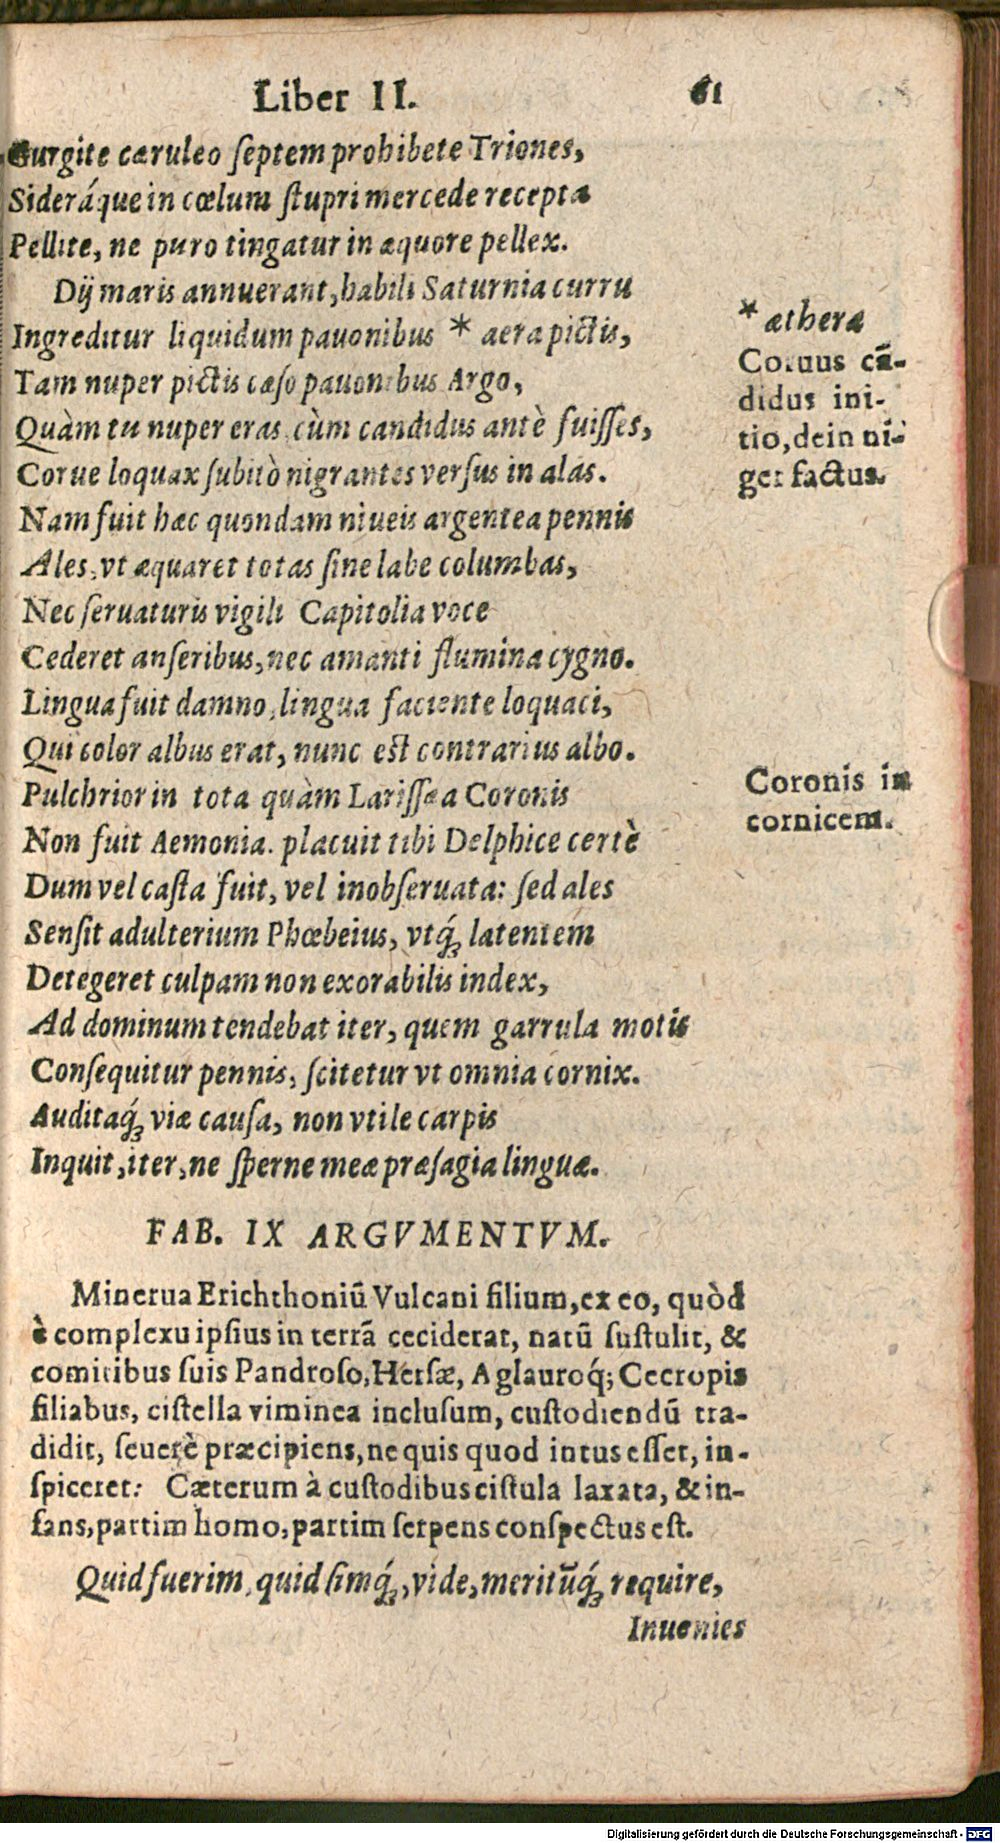 Liber II. 61
Gurgite cæruleo ſeptem prohibete Triones,
Sideráque in cœlum ſtupri mercede recepta
Pellite, ne puro tingatur in æquore pellex.
Dij maris annuerant, habili Saturnia curru
Ingreditur liquidum pauonibus * aera pictis,
Tam nuper pictis cæſo pauonibus Argo,
Quàm tu nuper eras cùm candidus antè fuiſſes,
Corue loquax ſubitò nigrantes verſus in alas.
Nam fuit hæc quondam niueis argentea pennis
Ales, vt æquaret totas ſine labe columbas,
Nec ſeruaturis vigili Capitolia voce
Cederet anſeribus, nec amanti flumina cygno.
Lingua fuit damno, lingua faciente loquaci,
Qui color albus erat, nunc eſt contrarius albo.
Pulchrior in tota quàm Lariſſæa Coronis
Non fuit Aemonia. placuit tibi Delphice certè
Dum vel caſta fuit, vel inobſeruata: ſed ales
Senſit adulterium Phœbeius, vtq́ꝫ latentem
Detegeret culpam non exorabilis index,
Ad dominum tendebat iter, quem garrula motis
Conſequitur pennis, ſcitetur vt omnia cornix.
Auditaq́ꝫ viæ cauſa, non vtile carpis
Inquit, iter, ne ſperne meæ præſagia linguæ.
* æthera
Coruus cā-
didus ini-
tio, dein ni-
ger factus.
Coronis in
cornicem.
FAB. IX ARGVMENTVM.
Minerua Erichthoniū Vulcani filium, ex eo, quòd
è complexu ipſius in terrā ceciderat, natū ſuſtulit, &
comitibus ſuis Pandroſo, Herſæ, Aglauroq́; Cecropis
filiabus, ciſtella viminea incluſum, cuſtodiendū tra-
didit, ſeuerè præcipiens, ne quis quod intus eſſet, in-
ſpiceret: Cæterum à cuſtodibus ciſtula laxata, & in-
fans, partim homo, partim ſerpens conſpectus eſt.
Quid fuerim, quid ſimq́ꝫ, vide, meritūq́ꝫ require,
Inuenies
Digitalisierung gefördert durch die Deutsche Forschungsgemeinschaft - DFG